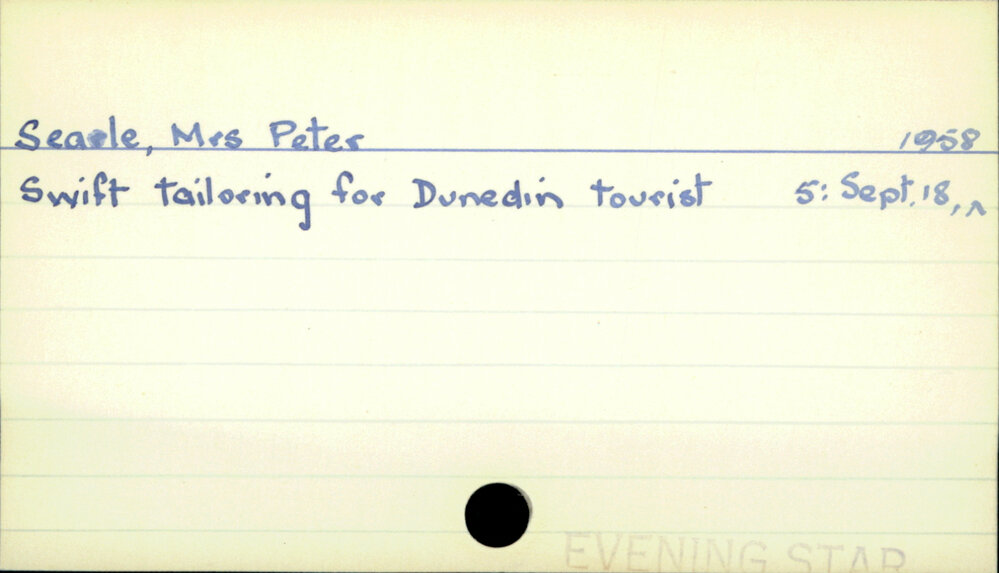 Searle, Mrs Peter
Swift tailoring for Dunedin tourist 5: Sept. 18, ^ 1958
EVENING STAR